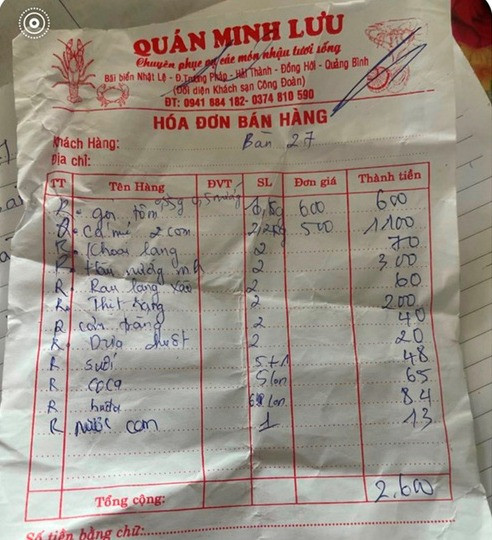 QUÁN MINH LƯU
Chuyên phục vụ các món nhậu tươi sống
Bãi biển Nhật Lệ - Đ.Trương Pháp - Hải Thành - Đồng Hới - Quảng Bình
(Đối diện Khách sạn Công Đoàn)
ĐT: 0941 684 182- 0374 810 590
HÓA ĐƠN BÁN HÀNG
Khách Hàng: Bàn 27
Địa chỉ:
TT Tên Hàng ĐVT SL Đơn giá Thành tiền
R gỏi tôm 600 600
R cá mú 2 con 2,2kg 500 1100
R Khoai lang 2 70
R Hàu nướng mh 2 300
R Rau lang xào 2 60
R Thịt rang 2 200
R cơm trắng 2 40
R Dưa chuột 2 20
R suối 5+1 48
R coca 5 lon 65
R lon 84
R nước cam 1 13
Tổng cộng: 2,600
Số tiền bằng chữ: